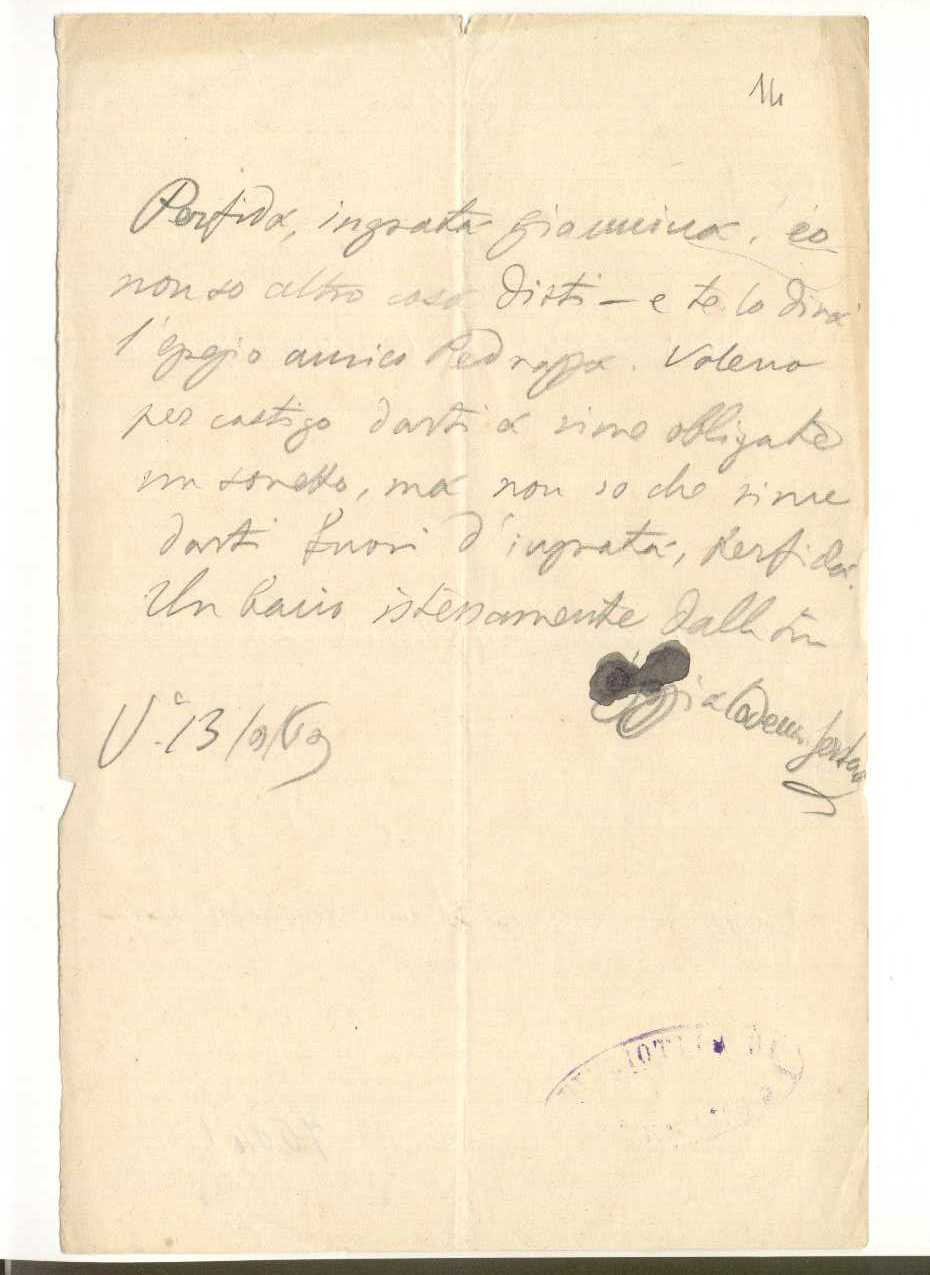 14
Perfida, ingrata Giannina, io
non so altro cosa dirti — e te lo dirà
l'egregio amico Pedrazza. Volevo
per castigo darti a rime obbligate
un sonetto, ma non so che rime
darti fuori d'ingrata, perfida.
Un bacio istessamente dalla tua
V. 13/9/